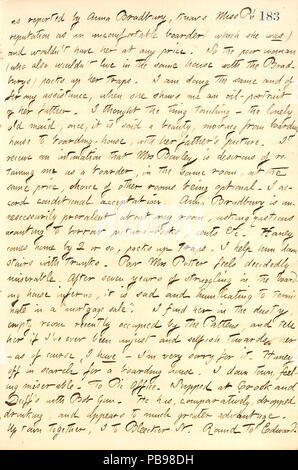 183
as reported by Anna Bradbury, knows Miss P's
reputation as an uncomfortable boarder which she was)
and wouldn't have her at any price. So the poor woman
(who also wouldn't live in the same house with the Brad-
burys) packs up her traps. I am doing the same and of-
fer my assistance, when she shows me an oil-portrait
of her father. I thought the thing touching — the lonely
old maid, once, it is said a beauty, moving from boarding
house to boarding-house, with her father's picture. I
receive an intimation that Mrs Boley is desirous of re-
taining me as a boarder, in the same room, at the
same price, choice of other rooms being optional. I ac-
cord conditional acceptation. Anna Bradbury is un-
necessarily prevalent about my room, asking questions
wanting to borrow picture-books, &c. Haney
comes home by 2 or so, packs up traps. I help him down
stairs with trunks. Poor Mrs Potter feels decidedly
miserable. After seven years of struggling in the board-
ing house inferno, it is sad and humiliating to termi-
nate in a mortgage sale. I find her in the dusty
empty room recently occupied by the Pattens, and tell
her if I've ever been unjust and selfish towards her
— as of course I have — I'm very sorry for it. Haney
off in search for a boarding house. I down town, feel-
ing miserable. To Pic Office. Stopped at Crook and
Duff's with Bob Gun. He has, comparatively, dropped
drinking, and appears to much greater advantage.
Up town together, I to Bleecker St. Round to Edwards'
alamy
Image ID: PB98DH
www.alamy.com